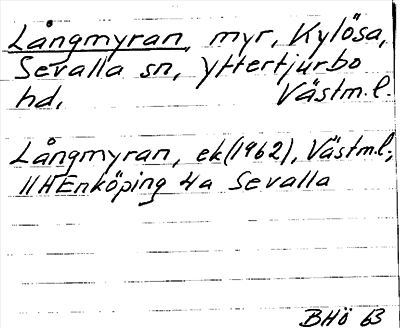 Långmyran, myr, Kylösa,
Sevalla sn, Yttertjurbo
hd. Västm.l.
Långmyran, ek(1962), Västm.l.;
11HEnköping 4a Sevalla
BHÖ 63